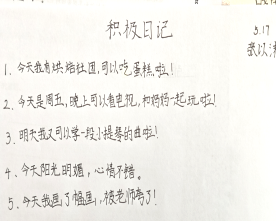 积极日记
3.17
1、今天我有烘焙社团,可以吃蛋糕啦!
2、今天是周五,晚上可以看电视,和妈妈一起玩啦!
3、明天我又可以学一段小提琴的曲啦!
4、今天阳光明媚,心情不错。
5、今天我画了幅画,被老师夸了!